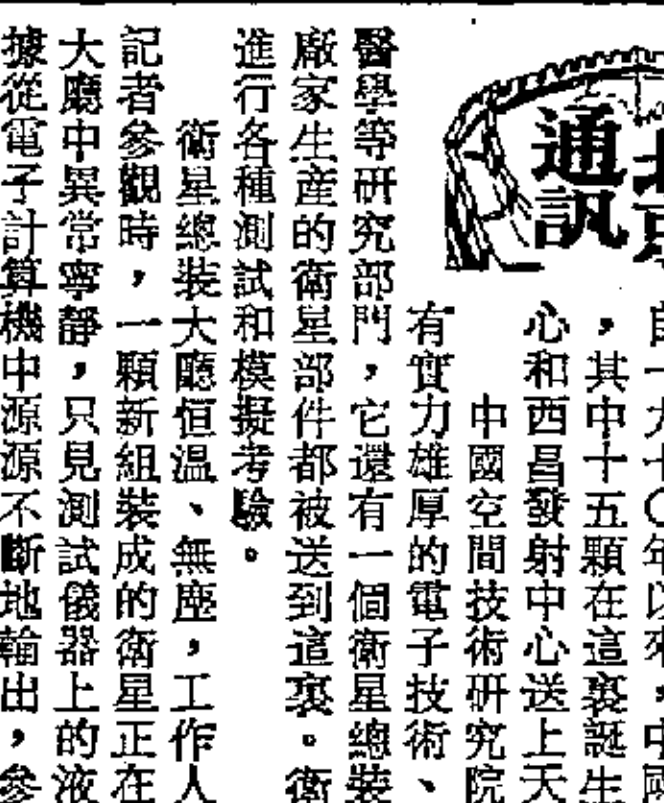 通訊
年以來，中國
，其中十五顆在這裏誕生
心和西昌發射中心送上天
中國空間技術研究院
有實力雄厚的電子技術、
醫學等研究部門，它還有一個衛星總裝
廠家生産的衛星部件都被送到這裏。衛
進行各種測試和模擬考驗。
衛星總裝大廳恒温、無塵，工作人
記者參觀時，一顆新組裝成的衛星正在
大廳中異常寧靜，只見測試儀器上的液
據從電子計算機中源源不斷地輸出，參